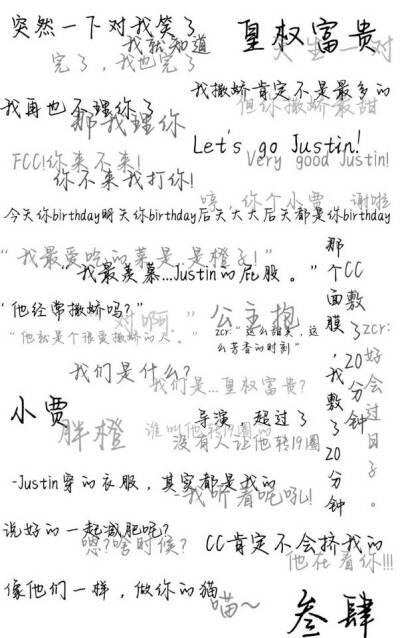 突然一下对我笑了
我就知道
皇权富贵
天生一对
完了，我也完了
我撒娇肯定不是最多的
但你撒娇最甜
我再也不理你了
那我理你
Let's go Justin!
Very good Justin!
FCC!你来不来!
你不来我打你!
唉，你个小贾 谢啦
今天你birthday明天你birthday后天大大后天都是你birthday
“我最爱吃的菜是…是橙子!”
“我最羡慕...Justin的屁股。”
那个CC面膜，我敷了20分钟
敷了20分钟
zcr:好会过日子。
“他经常撒娇吗?”
对啊。”
“他就是个很爱撒娇的人。”
公主抱
zcr:“这么甜美，这么芳香的时刻”
我们是什么?
我们是...皇权富贵?
小贾
胖橙
导演，超过了
谁叫他转19圈的
没有人让他转19圈
-Justin穿的衣服，其实都是我的
-我听着呢吼!
说好的一起减肥呢?
嗯?啥时候?
CC肯定不会挤我的
他在看你!!!
像他们一样，做你的猫
喵~
叁肆